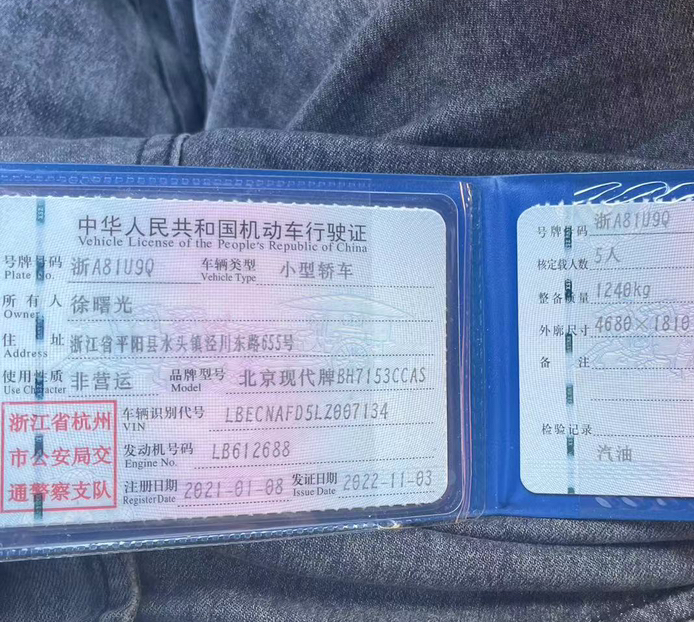 中华人民共和国机动车行驶证
Vehicle License of the People's Republic of China
号牌号码 浙A81U9Q 车辆类型 小型轿车
Plate No. Vehicle Type
所有人 徐曙光
Owner
住址 浙江省平阳县水头镇泾川东路655号
Address
使用性质 非营运 品牌型号 北京现代牌BH7153CCAS
Use Character Model
浙江省杭州
市公安局交
通警察支队
车辆识别代号 LBECNAFD5LZ007134
VIN
发动机号码 LB612688
Engine No.
注册日期 2021-01-08 发证日期 2022-11-03
Register Date Issue Date
号牌号码 浙A81U9Q
核定载人数 5人
整备质量 1240kg
外廓尺寸 4680×1810
备注
检验记录
汽油